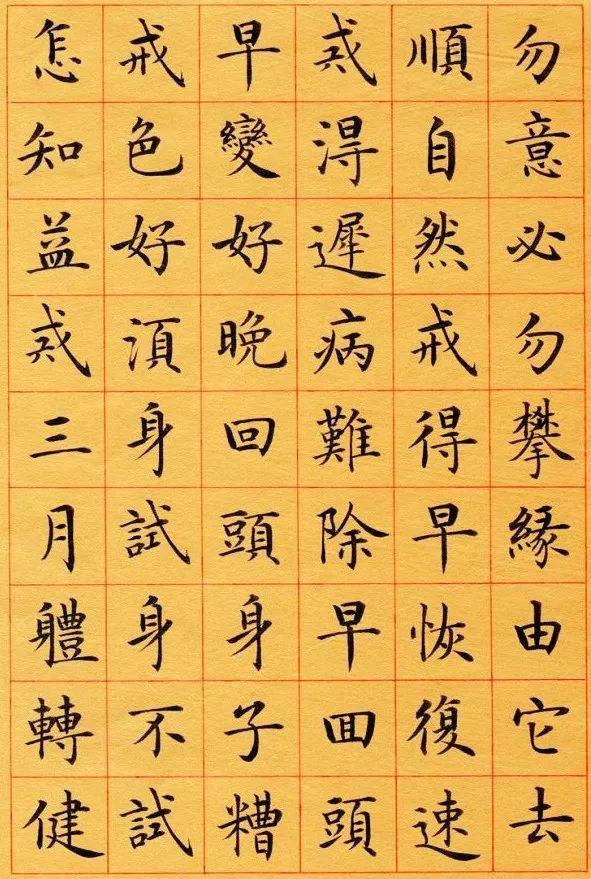 勿意必勿攀緣由它去
順自然戒得早恢復速
戒淂遲病難除早囬頭
早變好晚回頭身子糟
戒色好湏身試身不試
怎知益戒三月軆轉健